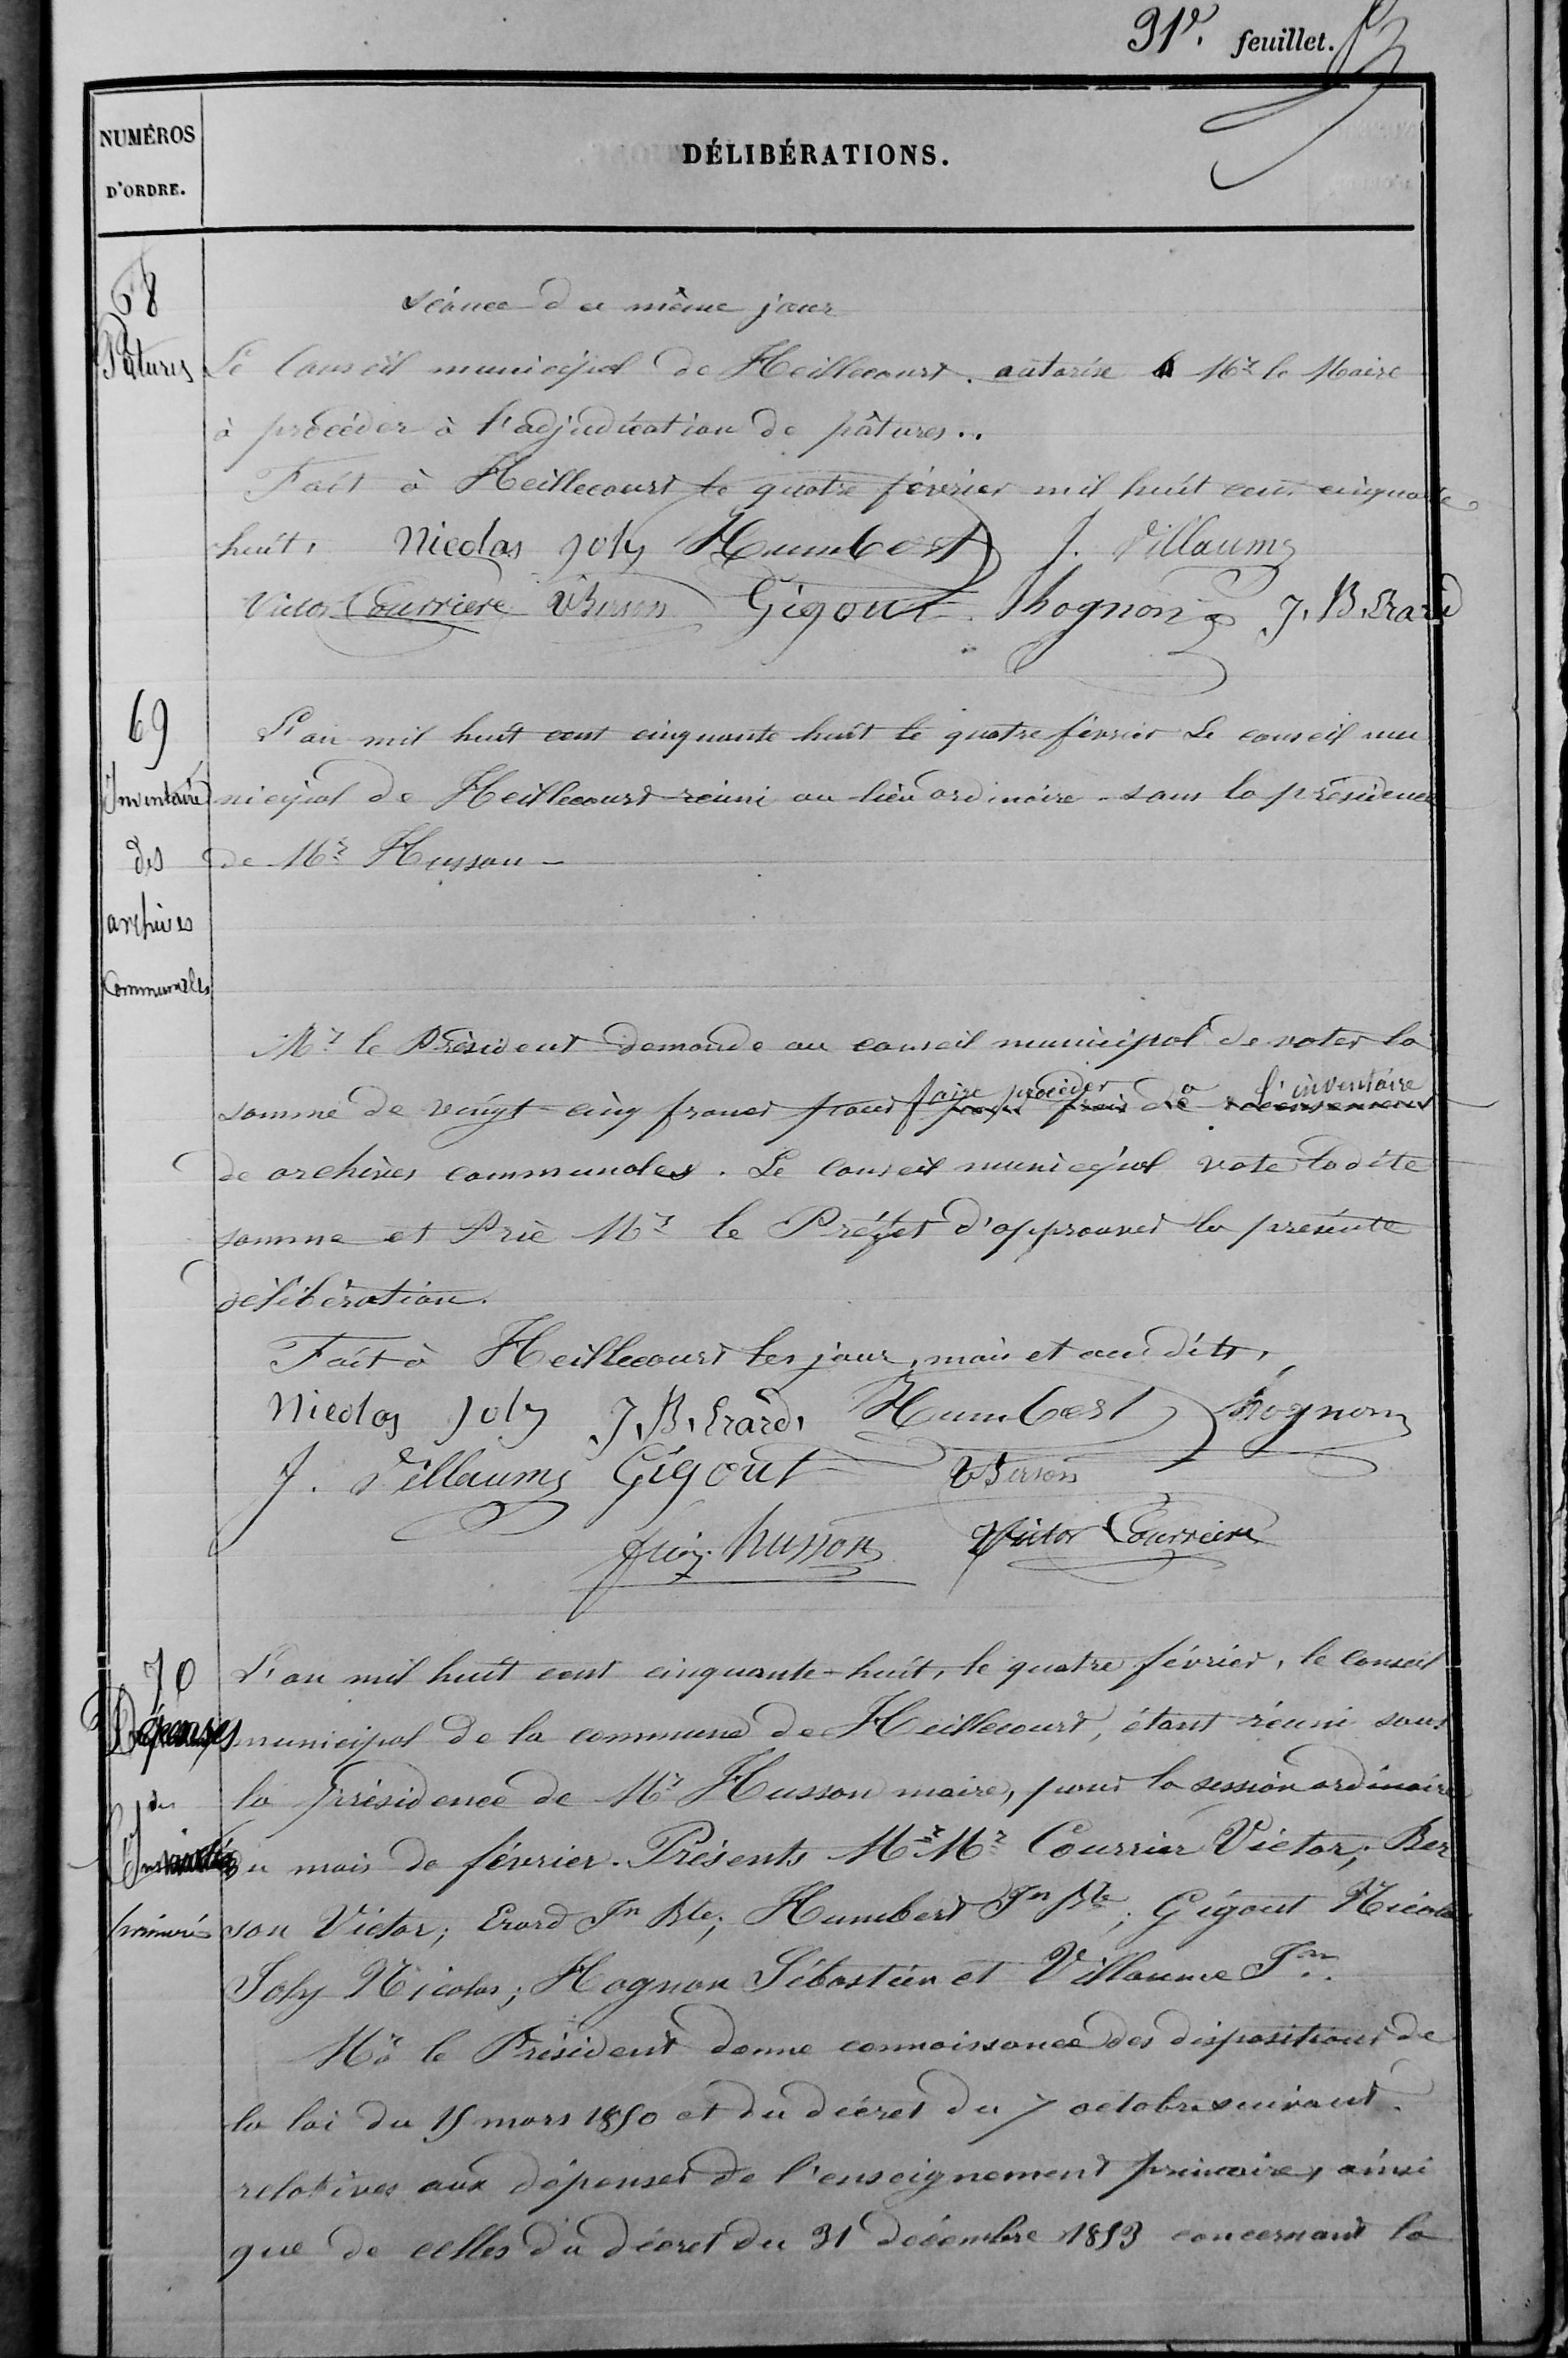 31e. feuillet.
NUMÉROS
D'ORDRE.
DÉLIBÉRATIONS.
68
Pâtures
Séance du même jour
Le Conseil municipal de Heillecourt. autorise Mr le Maire
à procéder à l'adjudication de pâtures..
Fait à Heillecourt le quatre février mil huit cent cinquante
huit. Nicolas Joly Humbert J. Villaume
Victor Courriere VBerson Gigout hognon J. B. Erard
69
Inventaire
des
archives
Communales
L'an mil huit cent cinquante huit le quatre février Le conseil mu
nicipal de Heillecourt réuni au lieu ordinaire - sous la présidence
de Mr Husson -
Mr le Président demande au conseil municipal de voter la
faire procéder à l'inventaire
somme de vingt-cinq francs pour frais de recensement
de archives communales. Le Conseil municipal vote ladite
somme et Prie Mr le Préfet d'approuver la présente
délibération.
Fait à Heillecourt les jour, mois et an dits,
Nicolas Joly J. B. Erard. Humbert hognon
J. Villaume Gigout VBerson
husson Victor Courriere
70
Dépenses
de
primaire
L'an mil huit cent cinquante-huit, le quatre février, le Conseil
municipal de la commune de Heillecourt, étant réuni sous
la présidence de Mr Husson maire, pour la session ordinaire
du mois de février. Présents Mr Mr Courrier Victor; Ber
son Victor; Erard Jn Bte; Humbert Jn Bte; Gigout Nicolas
Joly Nicolas; Hognon Sébastien et Villaume Jn.
Mr le Président donne connaissance des dispositions de
la loi du 15 mars 1850 et du décret du 7 octobre suivant.
relatives aux dépenses de l'enseignement primaire, ainsi
que de celles du décret du 31 décembre 1853 concernant la